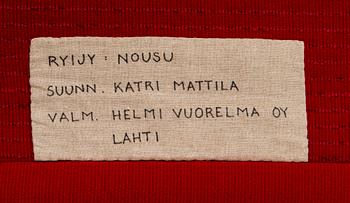 RYIJY : NOUSU
SUUNN. KATRI MATTILA
VALM. HELMI VUORELMA OY
LAHTI